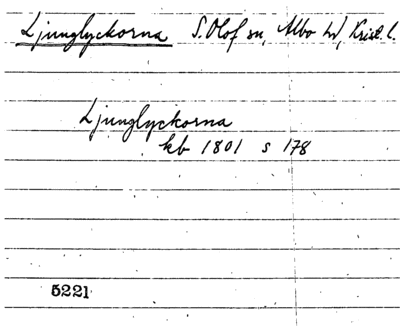 Ljunglyckorna S. Olof sn, Albo hd, Krist. l.
Ljunglyckorna
kb 1801 s 178
5221